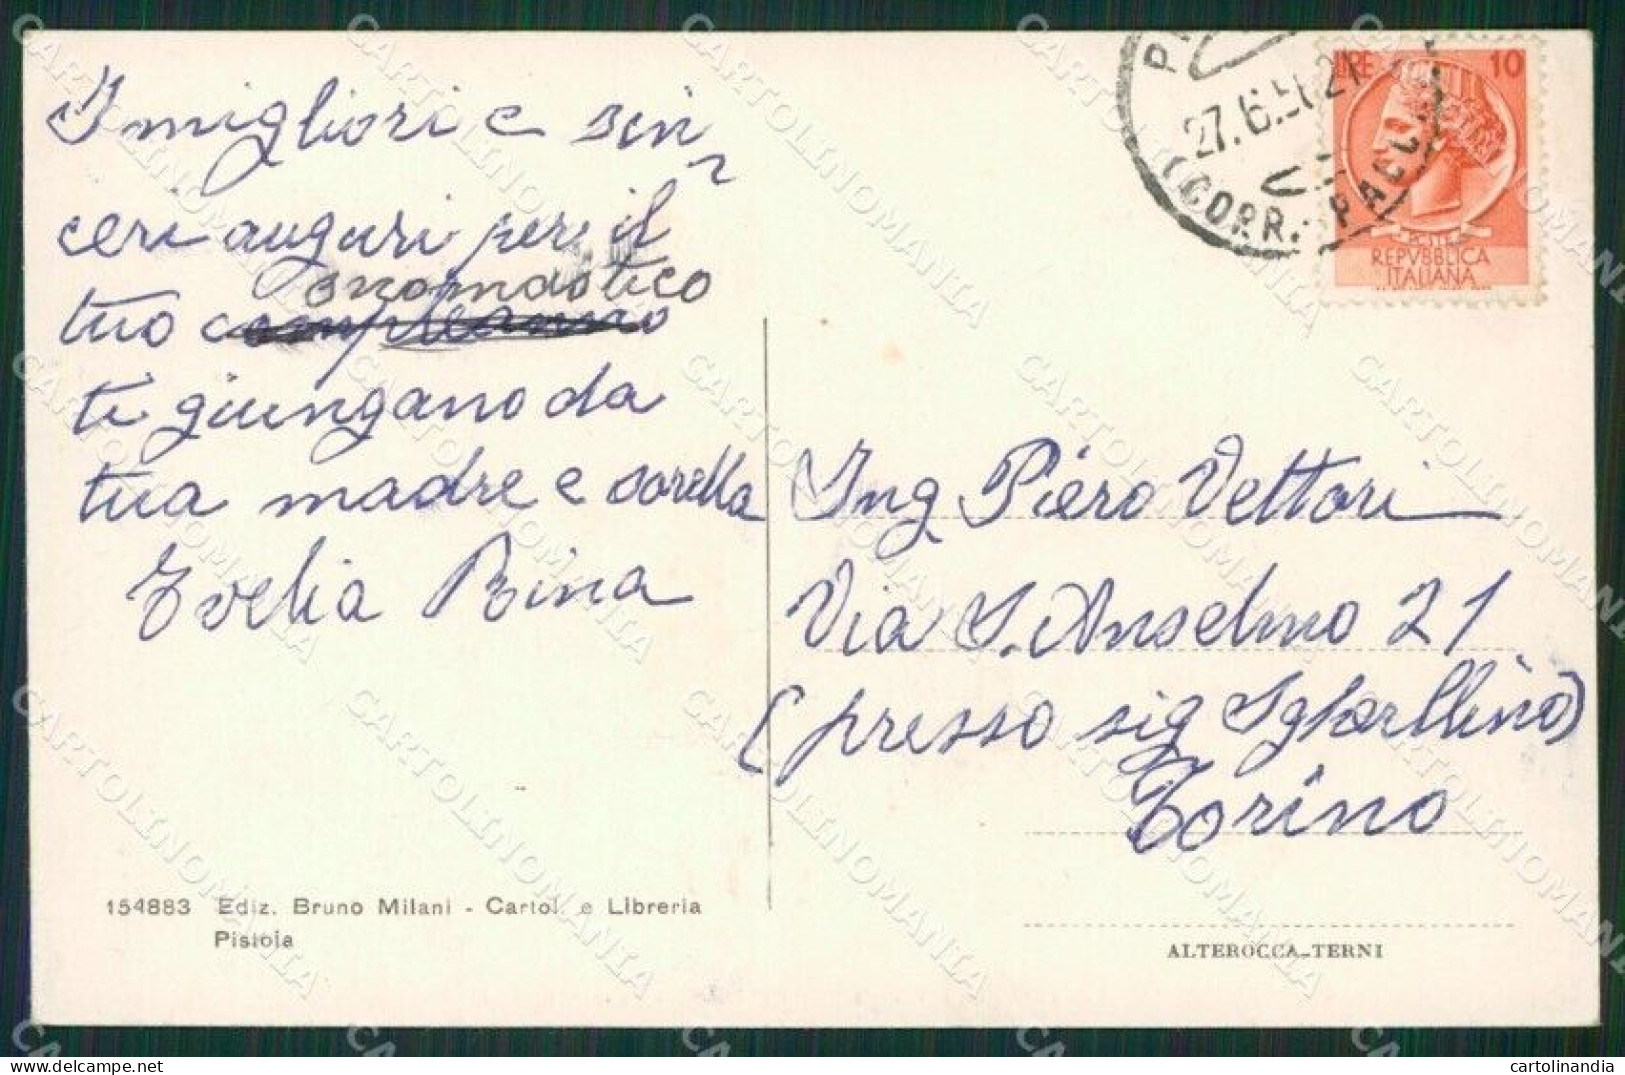 I migliori e sin
ceri auguri per il
onomastico
tuo compleanno
ti giungano da
tua madre e sorella
Evelia Rina
154883 Ediz. Bruno Milani - Cartol. e Libreria
Pistoia
27.6.5 21
(CORR. PACC
LIRE 10
POSTE
REPVBBLICA
ITALIANA
Ing Piero Vettori
Via S. Anselmo 21
(presso sig
Torino
ALTEROCCA-TERNI
CARTOLINOMANIA
cartolinandia